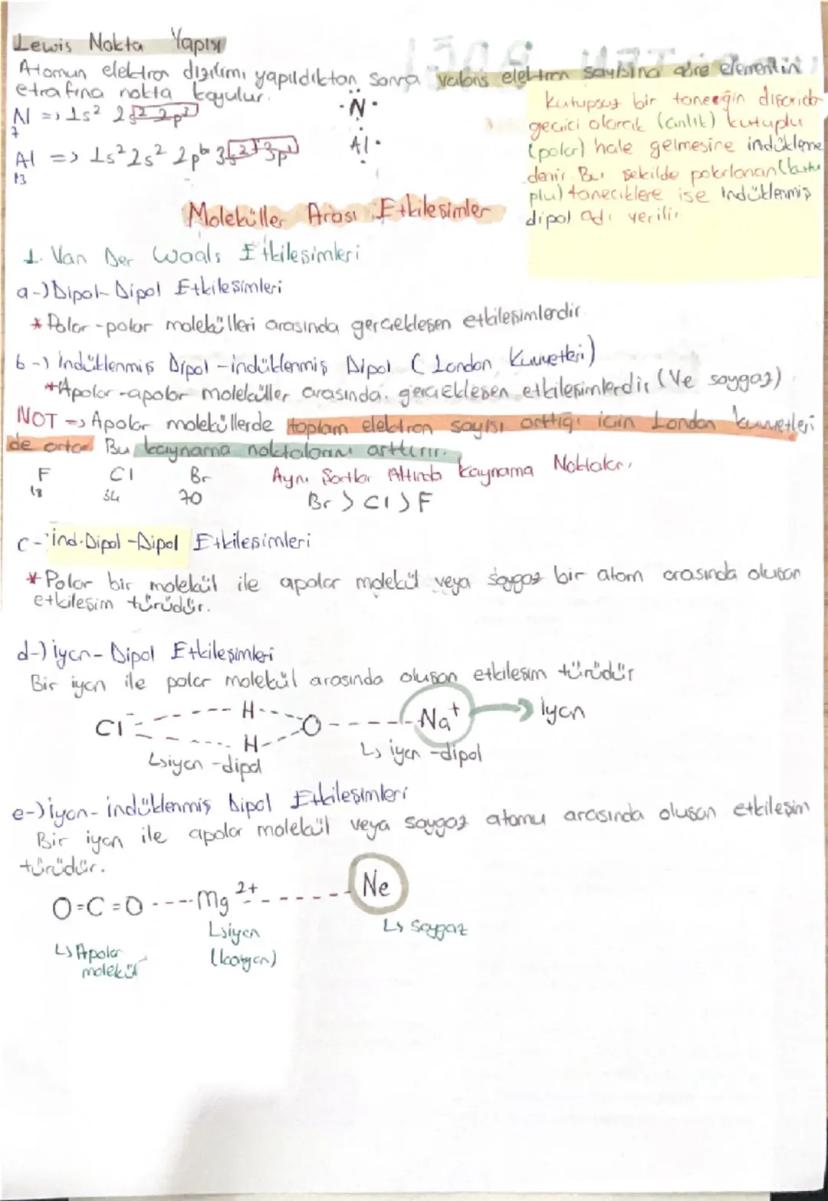 Lewis Nokta Yapısı
Atomun elektron dizilimi yapıldıktan sonra valans elektron sayısına göre elementin
etrafına nokta koyulur.
N => 1s² 2s² 2p³
7
·N·
Al => 1s² 2s² 2p⁶ 3s² 3p¹
13
Al·
Kutupsuz bir taneciğin dışarıdan
geçici olarak (anlık) kutuplu
(polar) hale gelmesine indükleme
denir. Bu şekilde polarlanan (kutu
plu) taneciklere ise indüklenmiş
dipol adı verilir
Moleküller Arası Etkileşimler
1. Van Der Waals Etkileşimleri
a-) Dipol-Dipol Etkileşimleri
* Polar-polar molekülleri arasında gerçekleşen etkileşimlerdir.
b-) İndüklenmiş Dipol-indüklenmiş Dipol (London Kuvvetleri)
* Apolar-apolar moleküller arasında gerçekleşen etkileşimlerdir (Ve soygaz)
NOT => Apolar moleküllerde toplam elektron sayısı arttığı için London kuvvetleri
de artar. Bu kaynama noktalarını arttırır.
F Cl Br Aynı Şartlar Altında Kaynama Noktaları
18 34 70 Br > Cl > F
c- İnd.Dipol-Dipol Etkileşimleri
* Polar bir molekül ile apolar molekül veya soygaz bir atom arasında oluşan
etkileşim türüdür.
d-) iyon-Dipol Etkileşimleri
Bir iyon ile polar molekül arasında oluşan etkileşim türüdür
Cl⁻ ---- H ---- O ------ Na⁺ → İyon
---- H
↳ iyon-dipol ↳ iyon-dipol
e-) iyon-indüklenmiş Dipol Etkileşimleri
Bir iyon ile apolar molekül veya soygaz atomu arasında oluşan etkileşim
türüdür.
O=C=O ---- Mg²⁺ ------ Ne
↳ Apolar
molekül
↳ iyon
(katyon)
↳ Soygaz